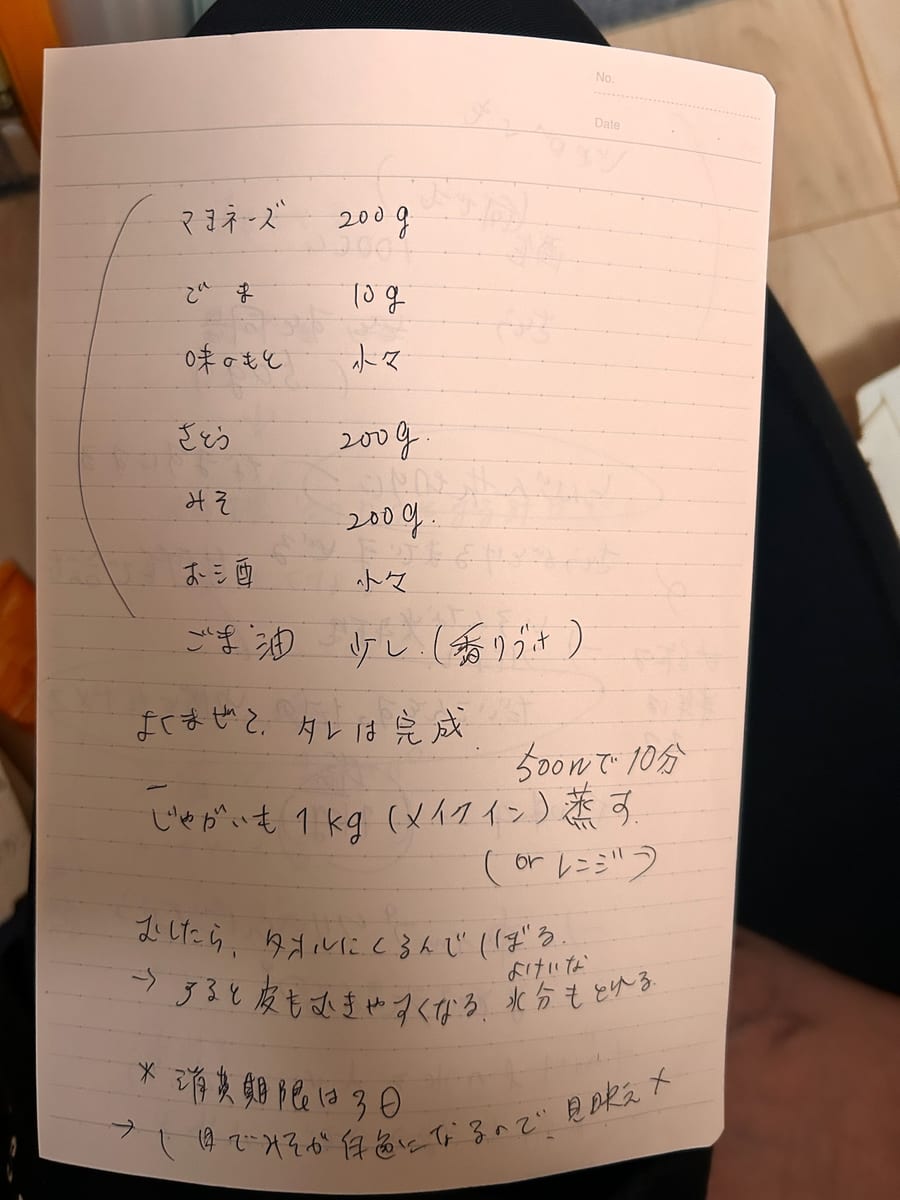 No.
Date
マヨネーズ 200g
ごま 10g
味のもと 小々
さとう 200g.
みそ 200g.
お酒 小々
ごま油 少し(香りづけ)
よくまぜて、タレは完成.
500Wで10分
じゃがいも 1kg (メイクイン) 蒸す.
(or レンジ)
むしたら、タオルにくるんでしぼる.
よけいな
→ すると皮もむきやすくなる. 水分もとれる.
* 消費期限は3日
→ 日でみそが 色になるので、見映え×